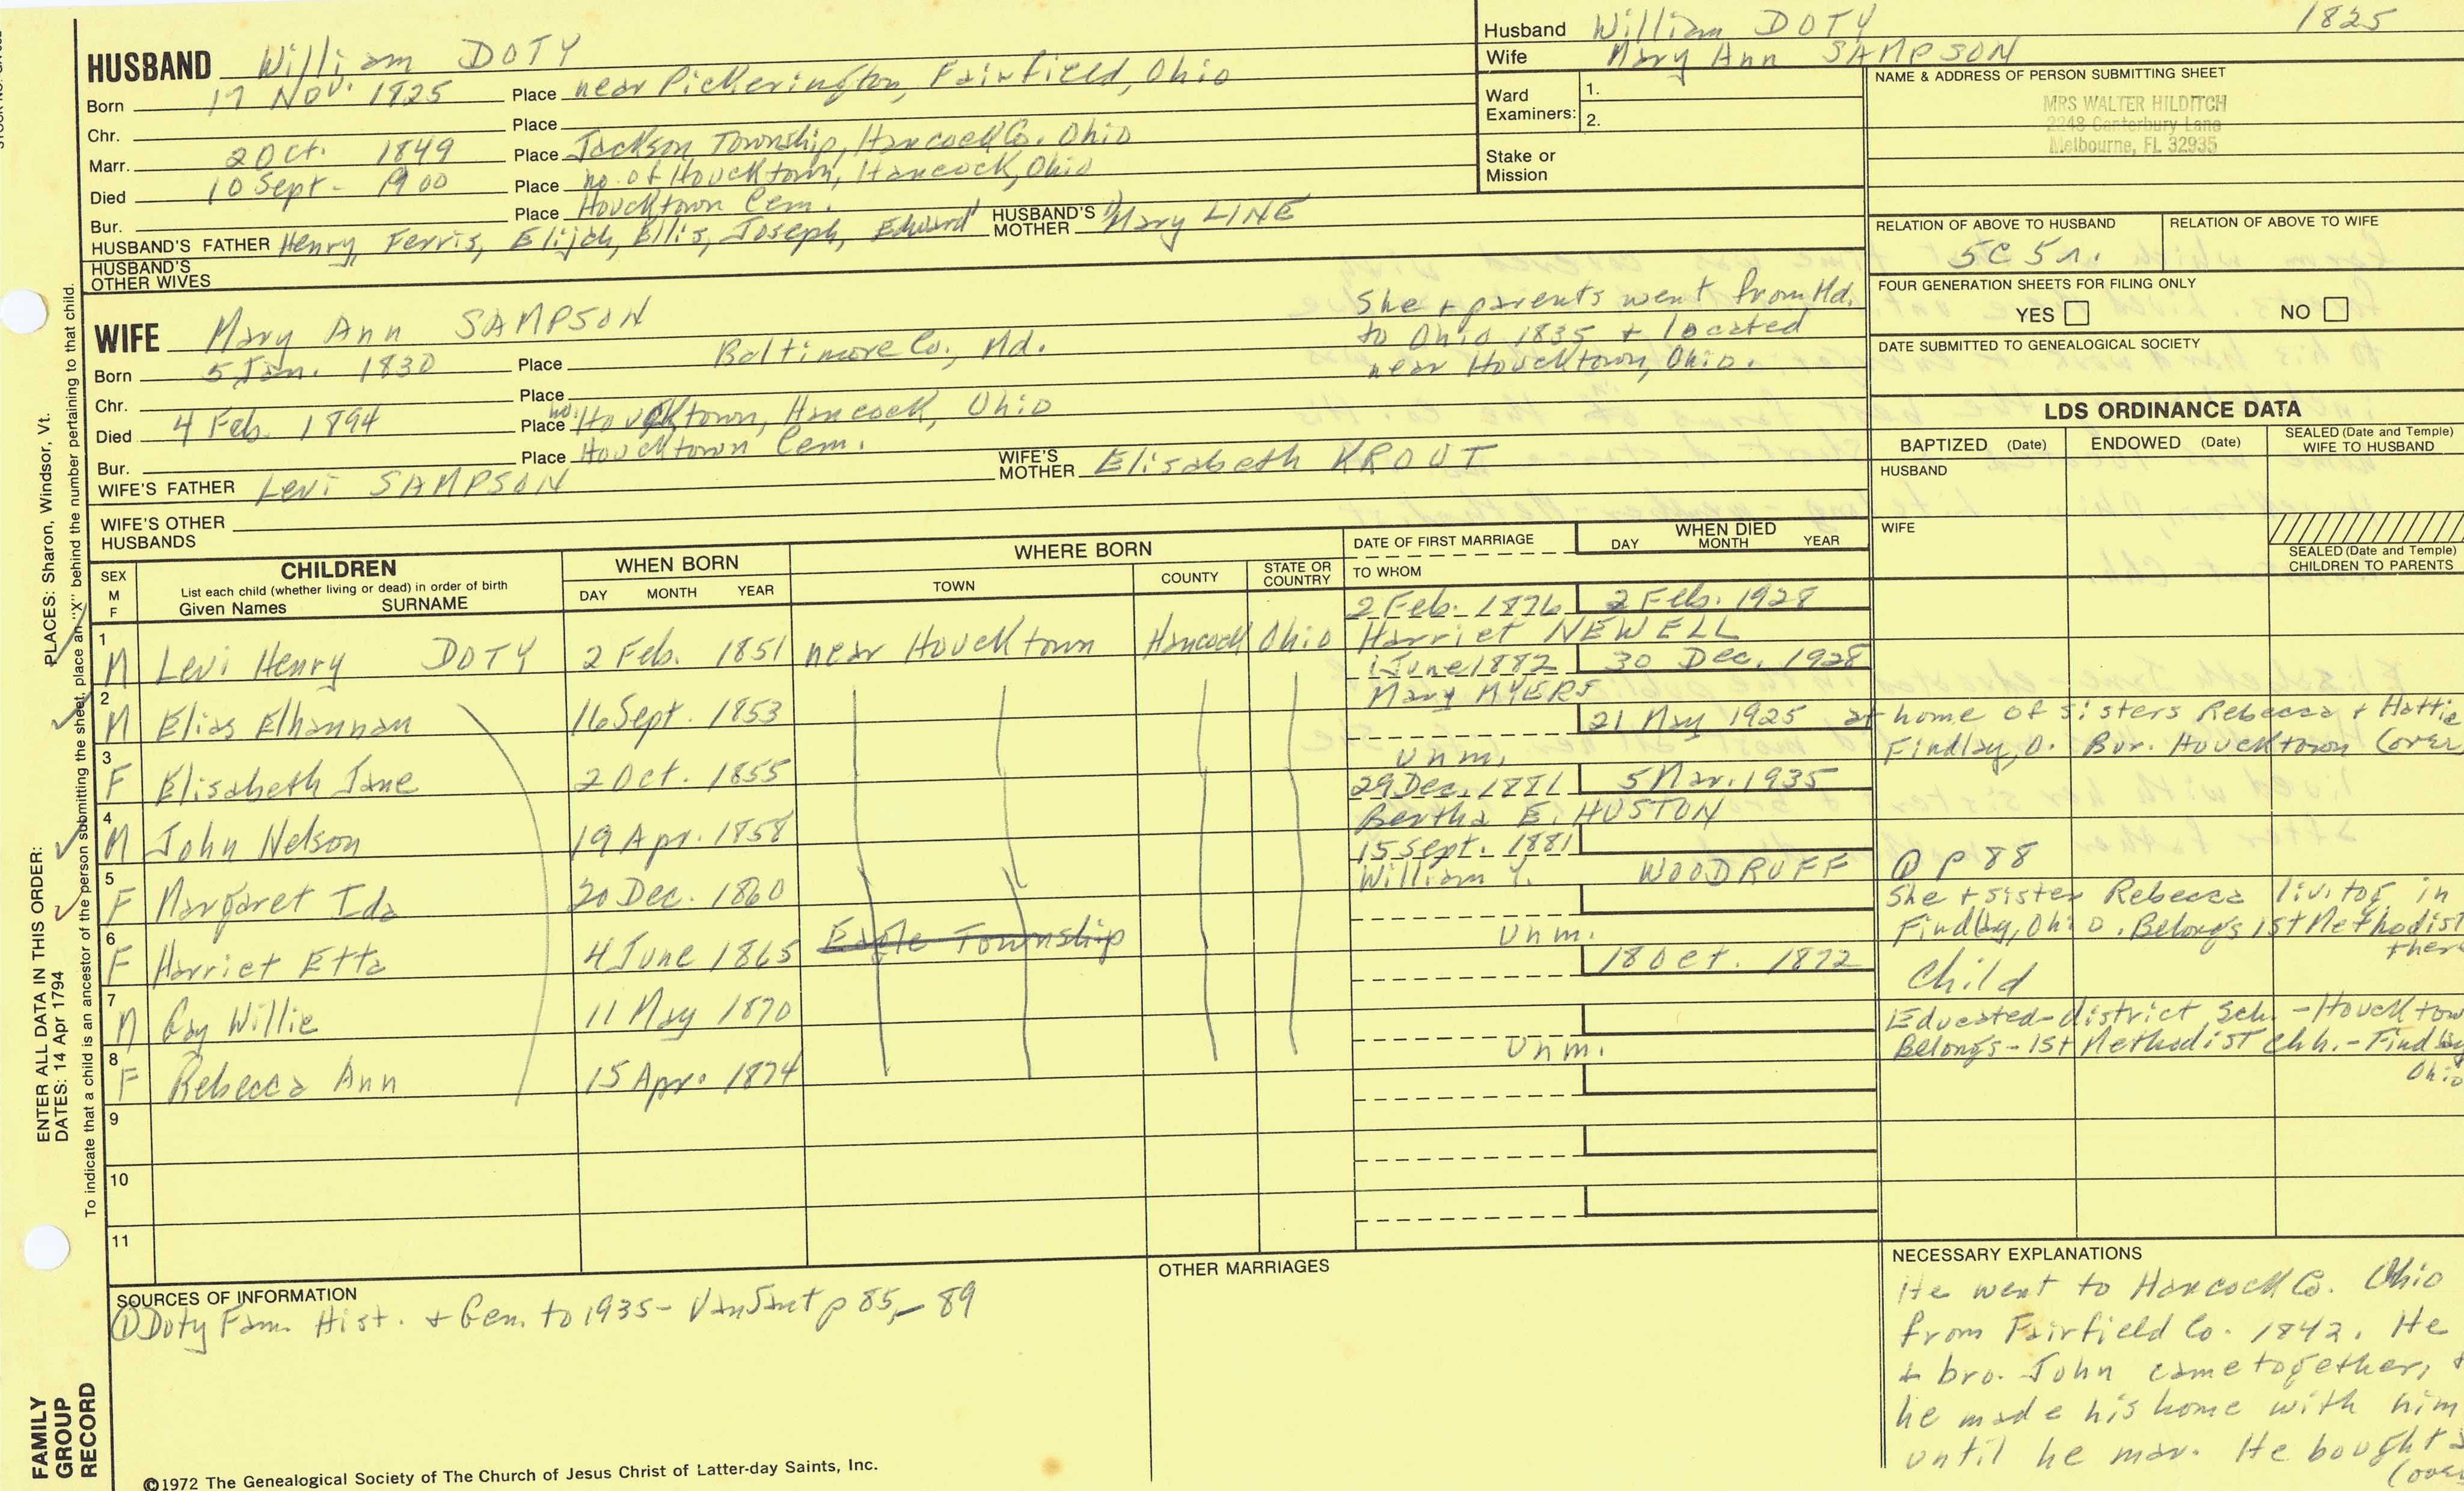 HUSBAND William DOTY
Born 17 Nov. 1825 Place near Pickerington, Fairfield, Ohio
Chr. Place
Marr. 2 Oct. 1849 Place Jackson Township, Hancock Co. Ohio
Died 10 Sept - 1900 Place no. of Houcktown, Hancock, Ohio
Bur. Place Houcktown Cem.
HUSBAND'S FATHER Henry, Ferris, Elijah, Ellis, Joseph, Edward HUSBAND'S MOTHER 1) Mary LINE
HUSBAND'S OTHER WIVES
Husband William DOTY 1825
Wife Mary Ann SAMPSON
Ward Examiners: 1.
2.
Stake or Mission
NAME & ADDRESS OF PERSON SUBMITTING SHEET
MRS WALTER HILDITCH
2248 Canterbury Lane
Melbourne, FL 32935
RELATION OF ABOVE TO HUSBAND RELATION OF ABOVE TO WIFE
5C 5r.
FOUR GENERATION SHEETS FOR FILING ONLY
YES NO
DATE SUBMITTED TO GENEALOGICAL SOCIETY
WIFE Mary Ann SAMPSON
Born 5 Jan. 1830 Place Baltimore Co., Md.
Chr. Place
Died 4 Feb. 1894 Place no. Houcktown, Hancock, Ohio
Bur. Place Houcktown Cem.
WIFE'S FATHER Levi SAMPSON WIFE'S MOTHER Elisabeth KROUT
WIFE'S OTHER HUSBANDS
She + parents went from Md.
to Ohio 1835 + located
near Houcktown, Ohio.
LDS ORDINANCE DATA
BAPTIZED (Date) ENDOWED (Date) SEALED (Date and Temple) WIFE TO HUSBAND
HUSBAND
WIFE
SEALED (Date and Temple) CHILDREN TO PARENTS
SEX M F CHILDREN List each child (whether living or dead) in order of birth Given Names SURNAME
WHEN BORN DAY MONTH YEAR
WHERE BORN TOWN COUNTY STATE OR COUNTRY
DATE OF FIRST MARRIAGE TO WHOM
WHEN DIED DAY MONTH YEAR
2 Feb. 1876 2 Feb. 1928
1 M Levi Henry DOTY 2 Feb. 1851 near Houcktown Hancock Ohio Harriet NEWELL
1 June 1882 30 Dec. 1928
2 M Elias Elhannan 16 Sept. 1853 Mary MYERS
21 May 1925 at home of sisters Rebecca + Hattie
3 F Elisabeth Jane 2 Oct. 1855 Unm. Findlay, O. Bur. Houcktown (over
29 Dec. 1881 5 Mar. 1935
4 M John Nelson 19 Apr. 1858 Bertha E. HUSTON
15 Sept. 1881
5 F Margaret Ida 20 Dec. 1860 William Y. WOODRUFF ① p 88
6 F Harriet Etta 4 June 1865 Eagle Township Unm. She + sister Rebecca liv. tog. in
Findlay, Ohio. Belongs 1st Methodist
there
18 Oct. 1872
7 M Guy Willie 11 May 1870 Child
8 F Rebecca Ann 15 Apr. 1874 Unm. Educated-district Sch. - Houcktow
Belongs-1st Methodist Chh. - Findlay
Ohio
9
10
11
SOURCES OF INFORMATION
① Doty Fam. Hist. + Gen. to 1935- VanSant p 85, - 89
OTHER MARRIAGES
NECESSARY EXPLANATIONS
He went to Hancock Co. Ohio
from Fairfield Co. 1842. He
+ bro. John came together, +
he made his home with him
until he mar. He bought a
(over
©1972 The Genealogical Society of The Church of Jesus Christ of Latter-day Saints, Inc.
FAMILY GROUP RECORD
ENTER ALL DATA IN THIS ORDER:
DATES: 14 Apr 1794
PLACES: Sharon, Windsor, Vt.
To indicate that a child is an ancestor of the person submitting the sheet, place an "X" behind the number pertaining to that child.